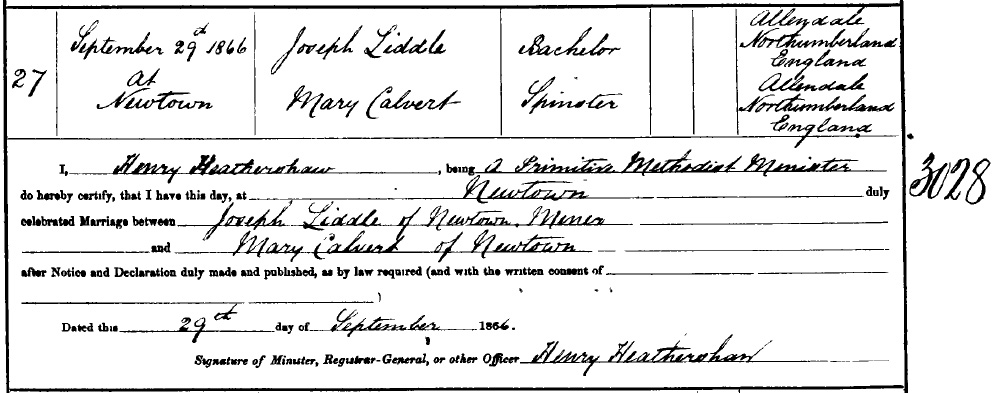 27
September 29th 1866
At
Newtown
Joseph Liddle
Mary Calvert
Bachelor
Spinster
Allendale
Northumberland
England
Allendale
Northumberland
England
I, Henry Heathershaw, being A Primitive Methodist Minister
do hereby certify, that I have this day, at Newtown duly
celebrated Marriage between Joseph Liddle of Newtown. Miner
and Mary Calvert of Newtown
after Notice and Declaration duly made and published, as by law required (and with the written consent of
)
Dated this 29th day of September 1866.
Signature of Minister, Registrar-General, or other Officer Henry Heathershaw
3028